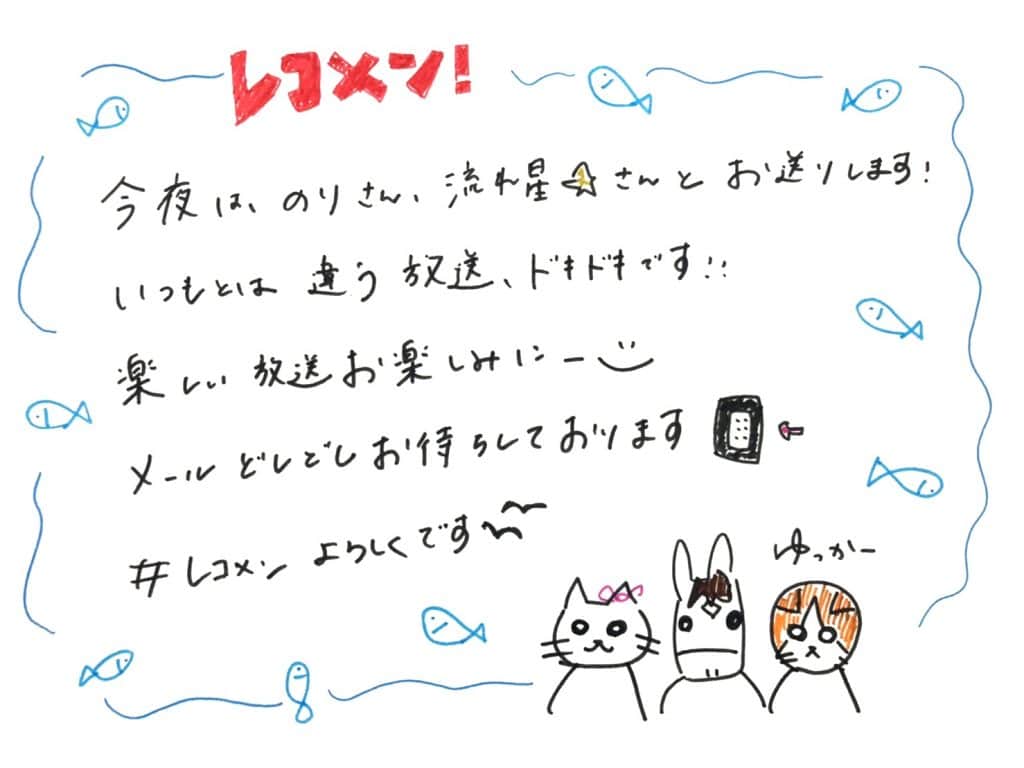 レコメン!
今夜は、のりさん、流れ星☆さんとお送りします!
いつもとは違う放送、ドキドキです!!
楽しい放送お楽しみにー
メールどしどしお待ちしております
#レコメン よろしくです
ゆっかー